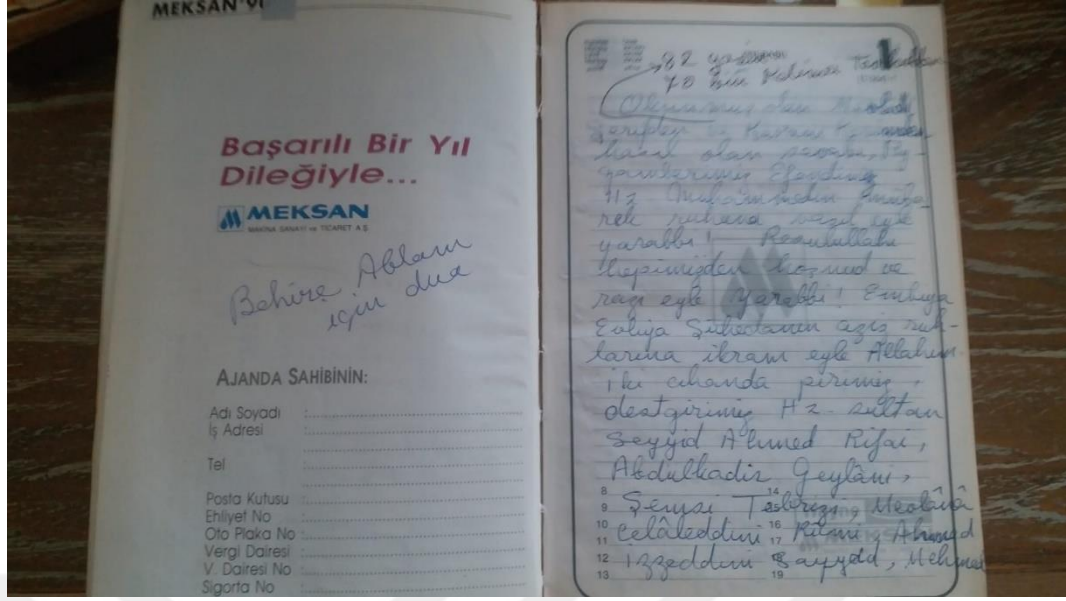 MEKSAN'90
Başarılı Bir Yıl
Dileğiyle...
MEKSAN
MAKİNA SANAYİ ve TİCARET A.Ş.
Behire Ablam
için dua
AJANDA SAHİBİNİN:
Adı Soyadı :
İş Adresi :
Tel :
Posta Kutusu :
Ehliyet No :
Oto Plaka No :
Vergi Dairesi :
V. Dairesi No :
Sigorta No :
1
82
70 bin Kelimei
Okunmuş olan Mevludu
Şerifden ve
hasıl olan sevabı, Pey-
gamberimiz Efendimiz
Hz Muhammedin Müba-
rek ruhuna vasıl eyle
yarabbi! Resulullahı
hepimizden hoşnud ve
razı eyle Yarabbi! Enbiya
Evliya Şühedanın aziz ruh-
larına ikram eyle Allahım
iki cihanda pirimiz,
destgirimiz Hz sultan
Seyyid Ahmed Rifai,
Abdulkadir Geylâni,
8 14
9 Şemsi Tebrizi, Mevlânâ
10 Celâleddini 16 Rûmi Ahmed
11 17
12 izzeddini Sayyad, Mehmed
13 19